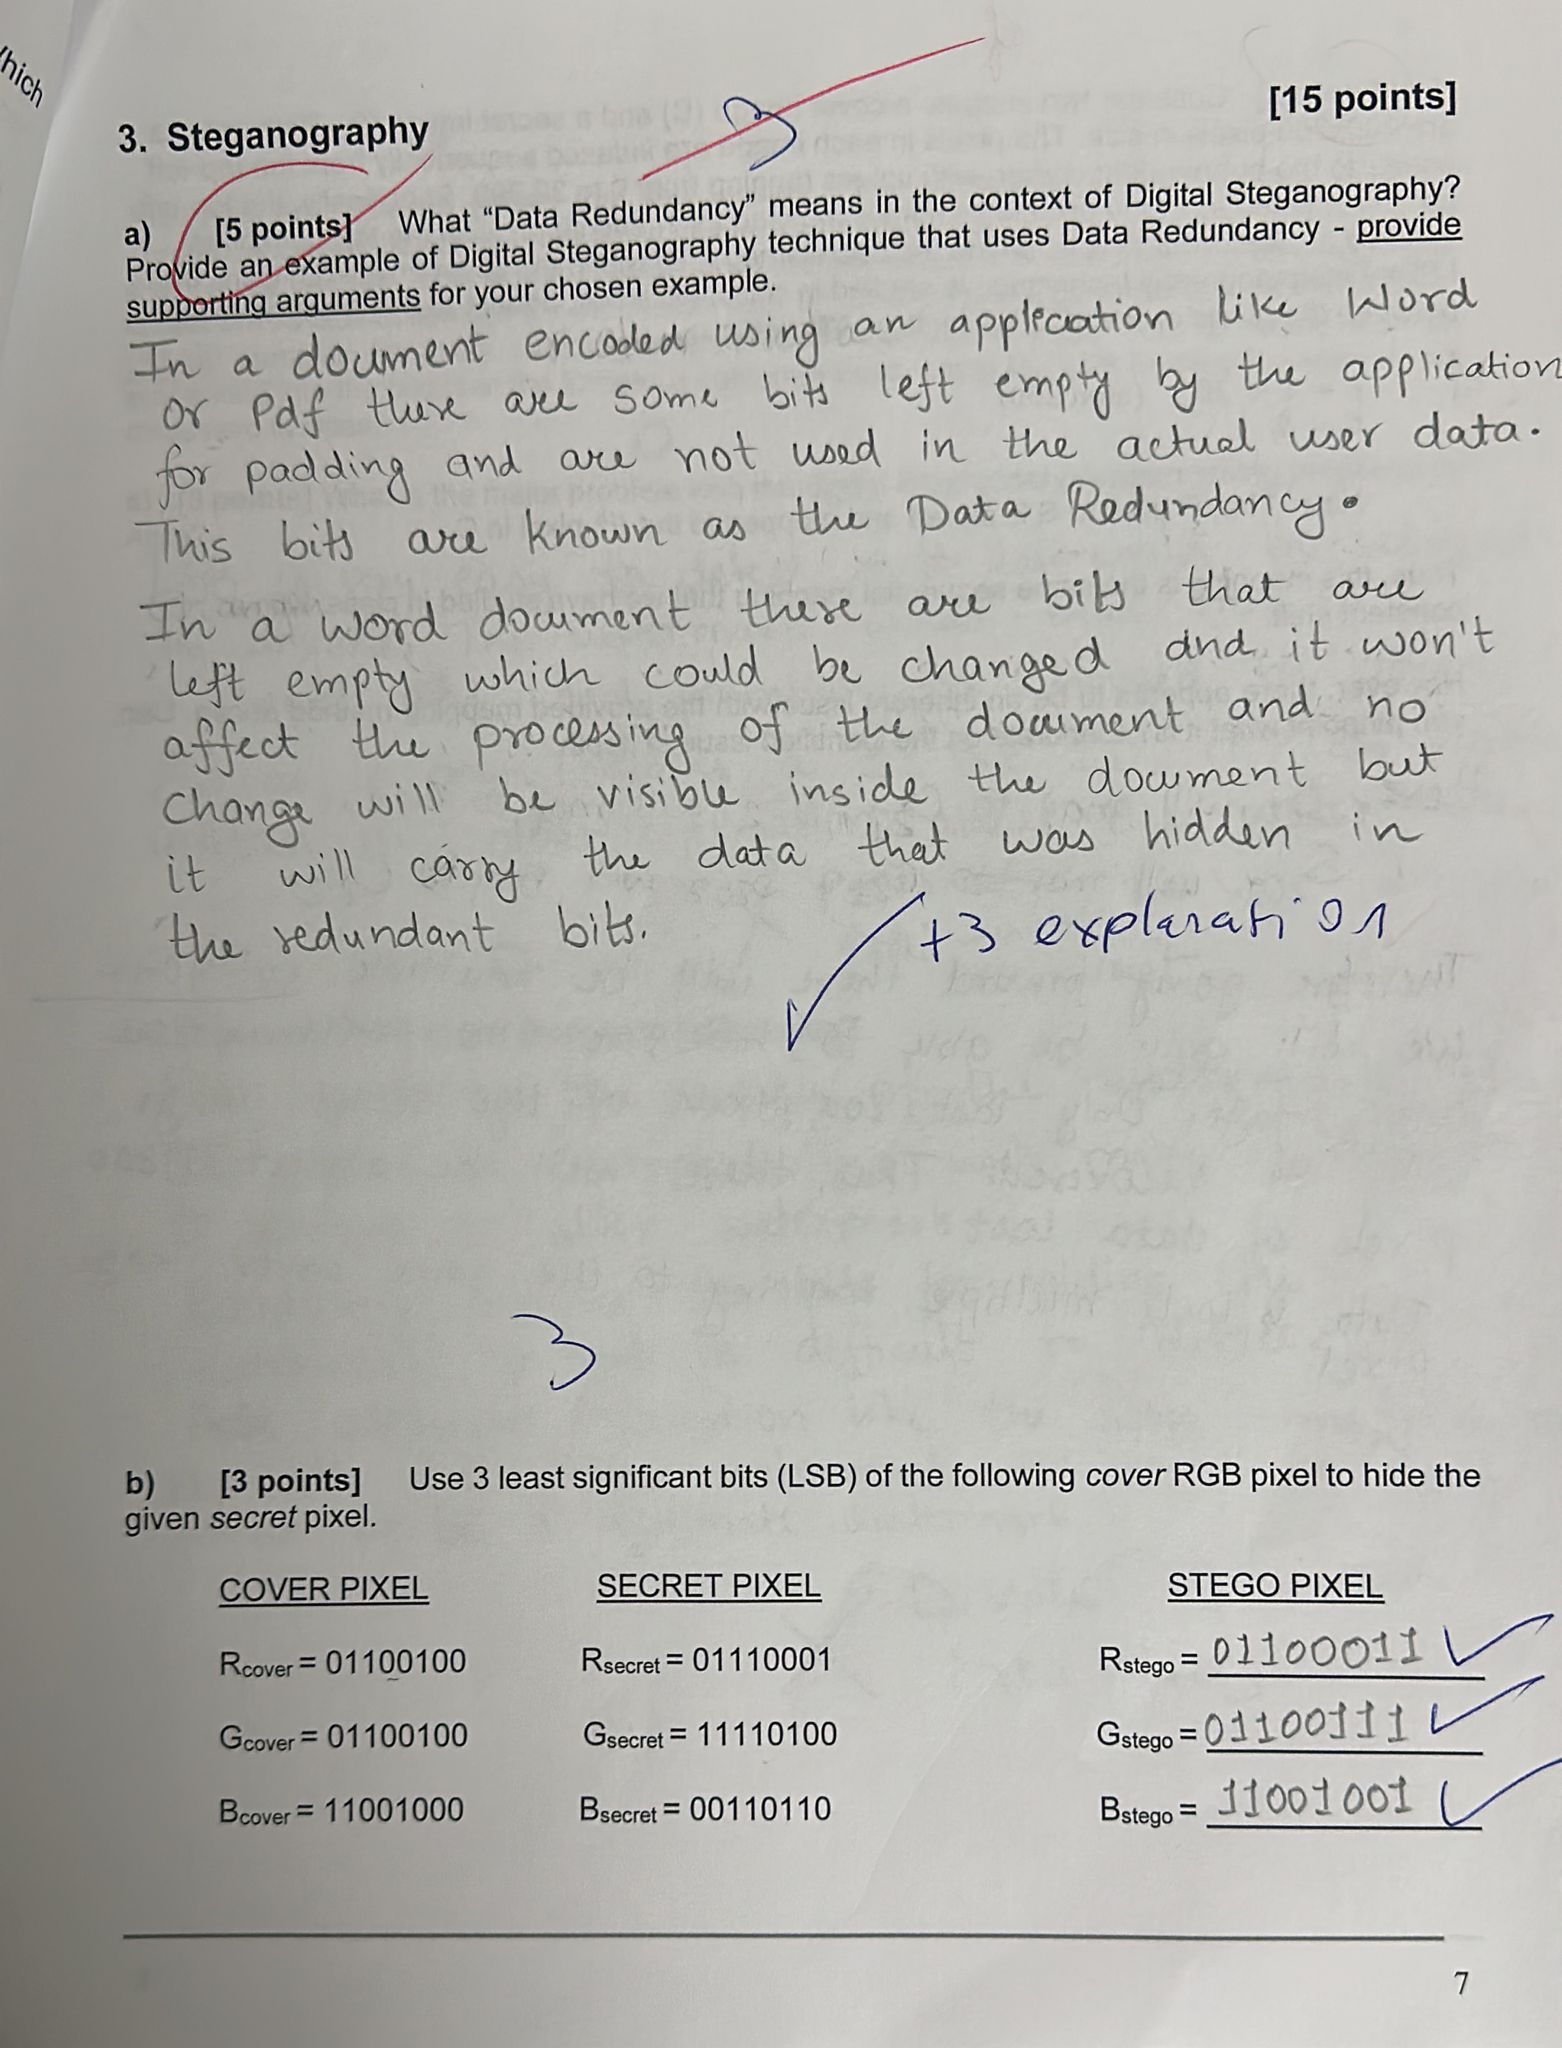 hich
[15 points]
3. Steganography
3
a) [5 points] What “Data Redundancy” means in the context of Digital Steganography?
Provide an example of Digital Steganography technique that uses Data Redundancy - provide
supporting arguments for your chosen example.
In a document encoded using an application like Word
or Pdf there are some bits left empty by the application
for padding and are not used in the actual user data.
This bits are known as the Data Redundancy.
In a word document there are bits that are
left empty which could be changed and it won't
affect the processing of the document and no
change will be visible inside the document but
it will carry the data that was hidden in
the redundant bits.
+3 explanation
3
b) [3 points] Use 3 least significant bits (LSB) of the following cover RGB pixel to hide the
given secret pixel.
COVER PIXEL SECRET PIXEL STEGO PIXEL
Rcover = 01100100 Rsecret = 01110001 Rstego = 01100011
Gcover = 01100100 Gsecret = 11110100 Gstego = 01100111
Bcover = 11001000 Bsecret = 00110110 Bstego = 11001001
7